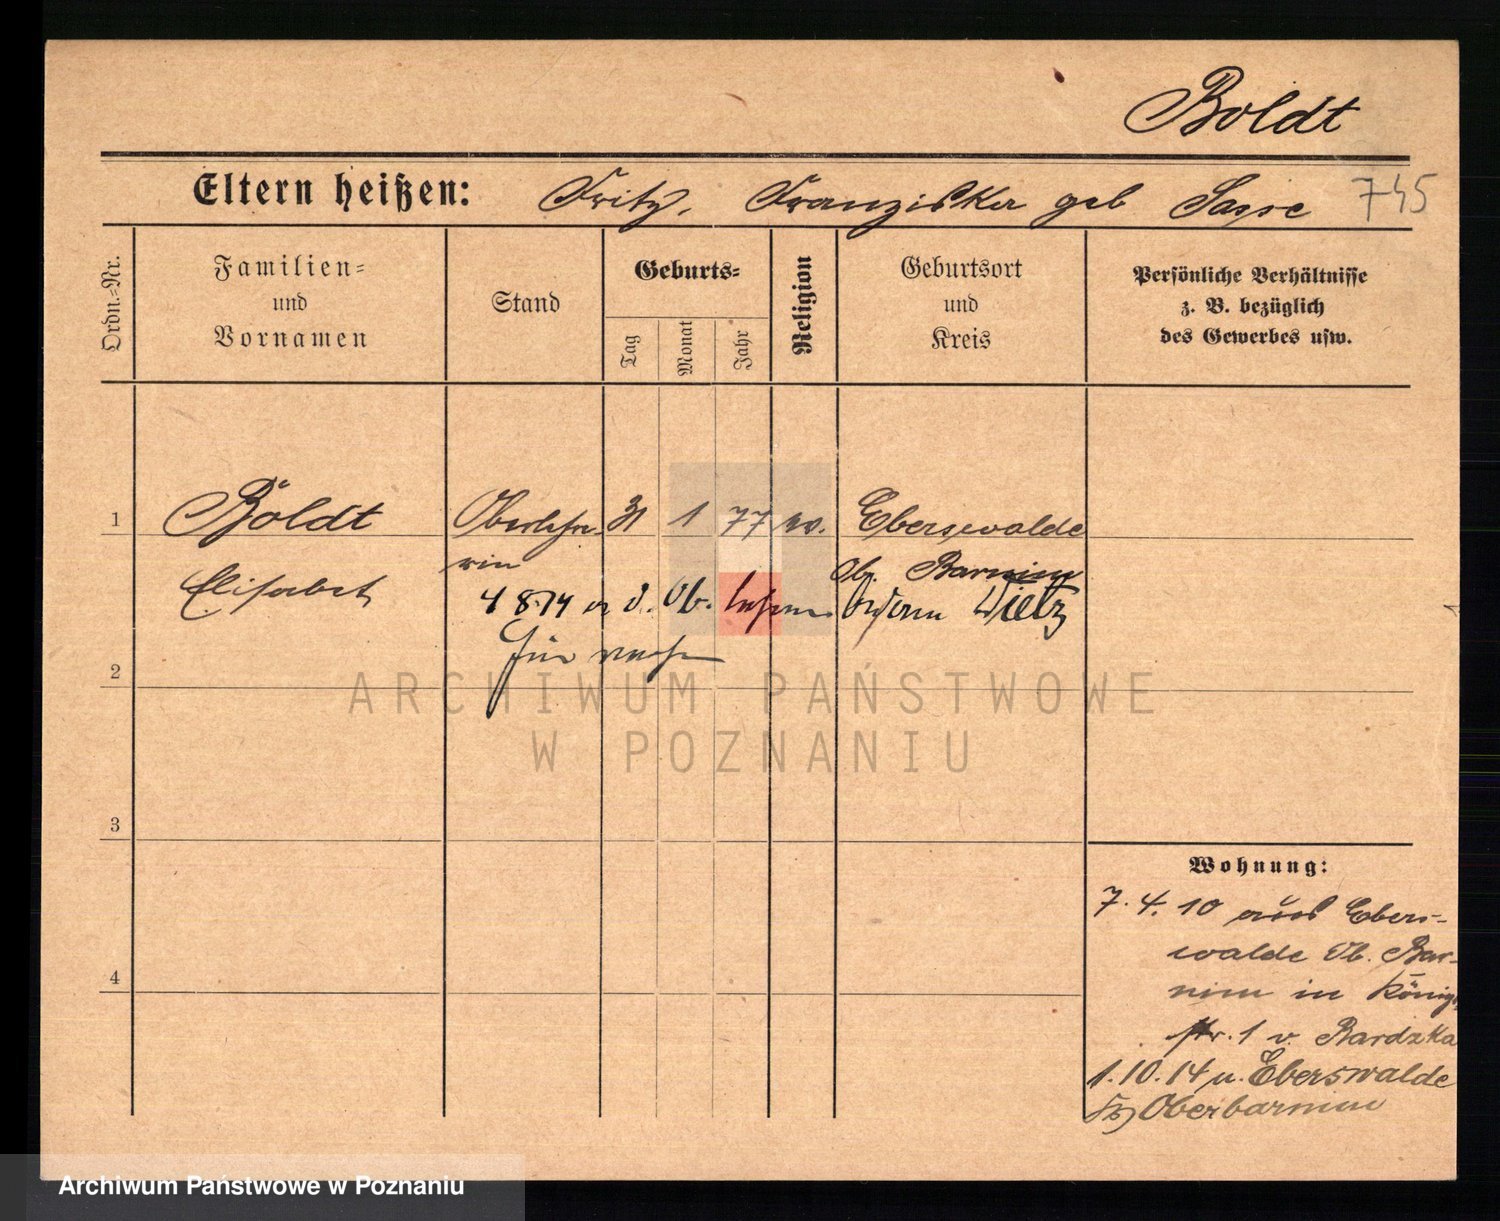 Boldt
Eltern heißen: Fritz, Franziska geb Sasse 745
Ordn.=Nr.
Familien=
und
Vornamen
Stand
Geburts=
Tag
Monat
Jahr
Religion
Geburtsort
und
Kreis
Persönliche Verhältnisse
z. B. bezüglich
des Gewerbes usw.
1 Boldt Oberlehre- 31 1 77 ev. Eberswalde
rin Ob. Barnim
Elisabet
4 8 14 Dietz
2
ARCHIWUM PAŃSTWOWE
W POZNANIU
3
4
Wohnung:
7.4.10 aus Ebers-
walde Ob. Bar-
nim in Königs
str. 1 v. Bardzka
1.10.14 n. Eberswalde
Oberbarnim
Archiwum Państwowe w Poznaniu